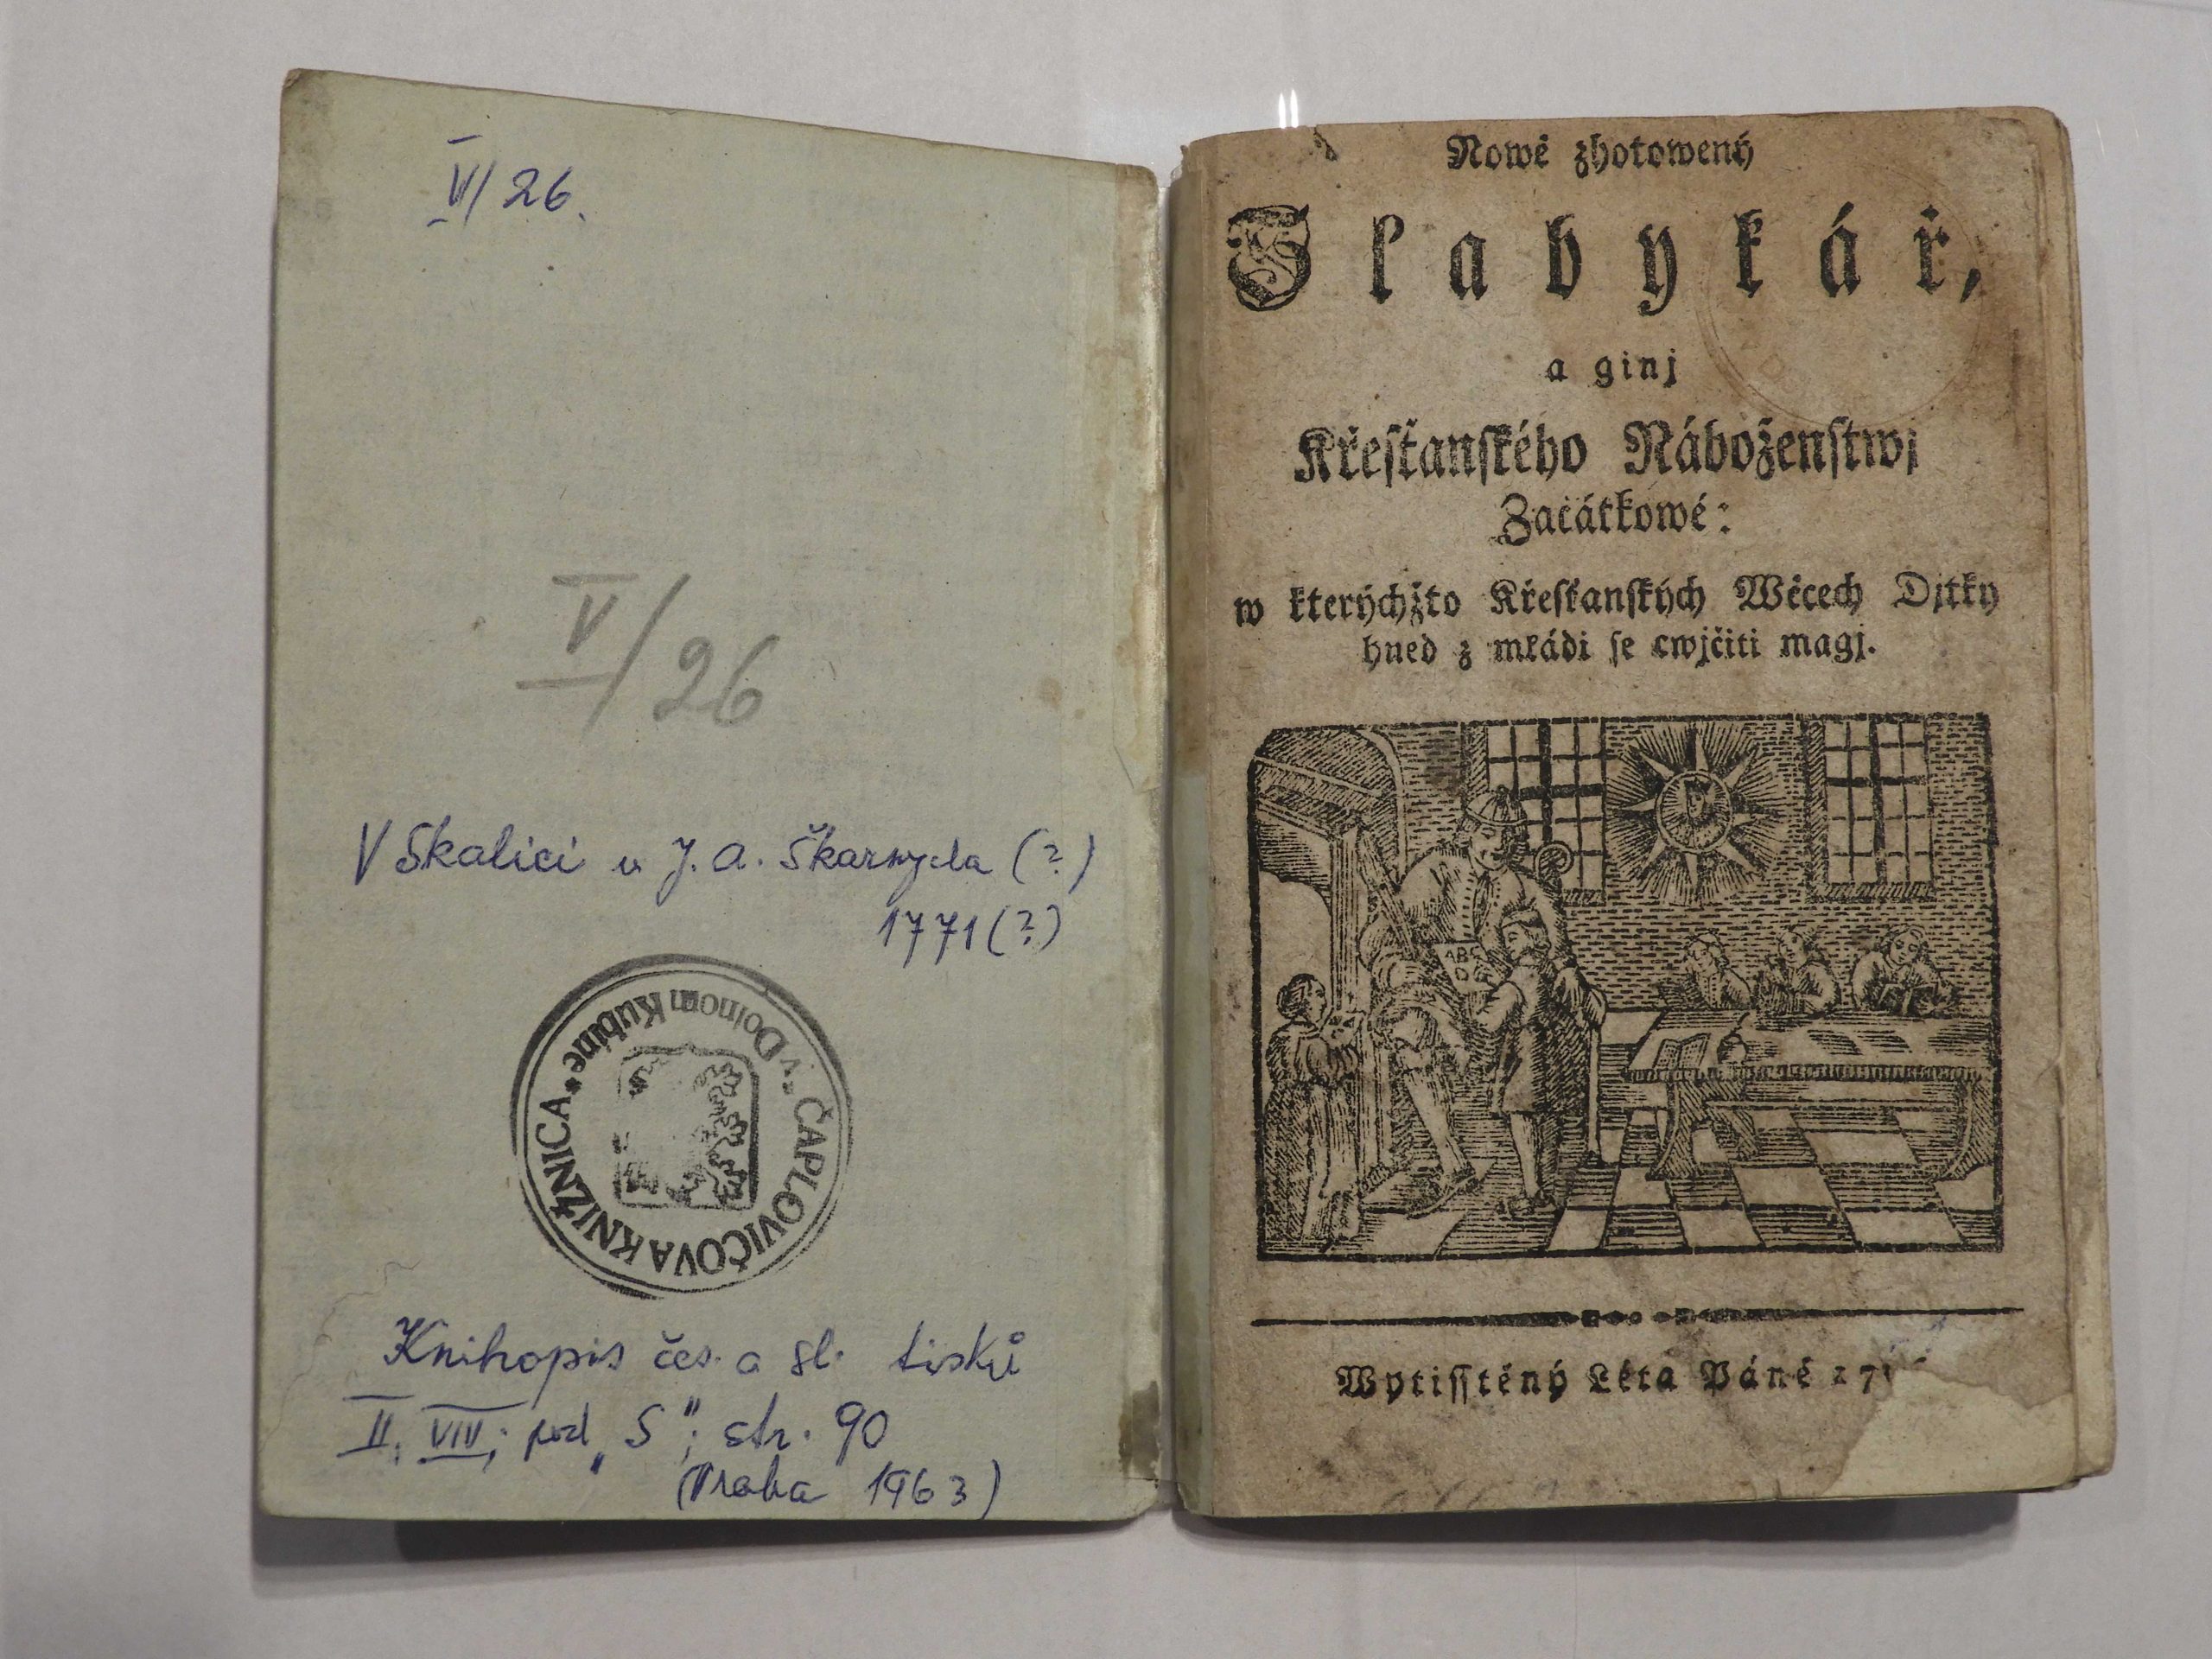 V/26.
V/26
V Skalici u J. A. Škarnycla (?)
1771 (?)
ČAPLOVIČOVA KNIŽNICA * v Dolnom Kubíne *
Knihopis čes. a sl. tisků
II, VIII, pod „S"; str. 90
(Praha 1963)
Nowě zhotowený
Slabykář,
a ginj
Křesťanského Náboženstwj
Začátkowé:
w kterýchžto Křesťanských Wěcech Djtky
hned z mládi se cwjčiti magj.
ABC
D
Wytisstěný Léta Páně 17